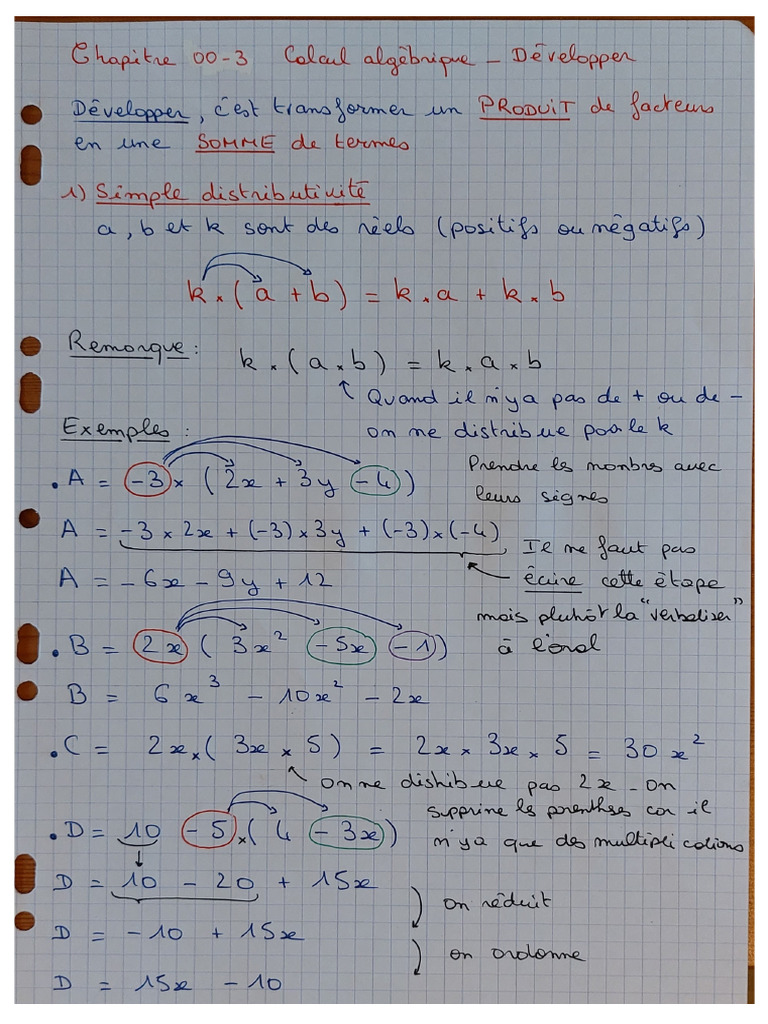 Chapitre 00-3 Calcul algébrique - Développer
Développer, c'est transformer un PRODUIT de facteurs
en une SOMME de termes
1) Simple distributivité
a, b et k sont des réels (positifs ou négatifs)
k × (a + b) = k × a + k × b
Remarque : k × (a × b) = k × a × b
Quand il n'y a pas de + ou de -
on ne distribue pas le k
Exemples :
• A = -3 × (2x + 3y - 4)
Prendre les nombres avec
leurs signes
A = -3 × 2x + (-3) × 3y + (-3) × (-4)
Il ne faut pas
écrire cette étape
mais plutôt la "verbaliser"
à l'oral
A = -6x - 9y + 12
• B = 2x (3x² - 5x - 1)
B = 6x³ - 10x² - 2x
• C = 2x × (3x × 5) = 2x × 3x × 5 = 30x²
on ne distribue pas 2x - on
supprime les parenthèses car il
n'y a que des multiplications
• D = 10 - 5 × (4 - 3x)
D = 10 - 20 + 15x
on réduit
D = -10 + 15x
on ordonne
D = 15x - 10